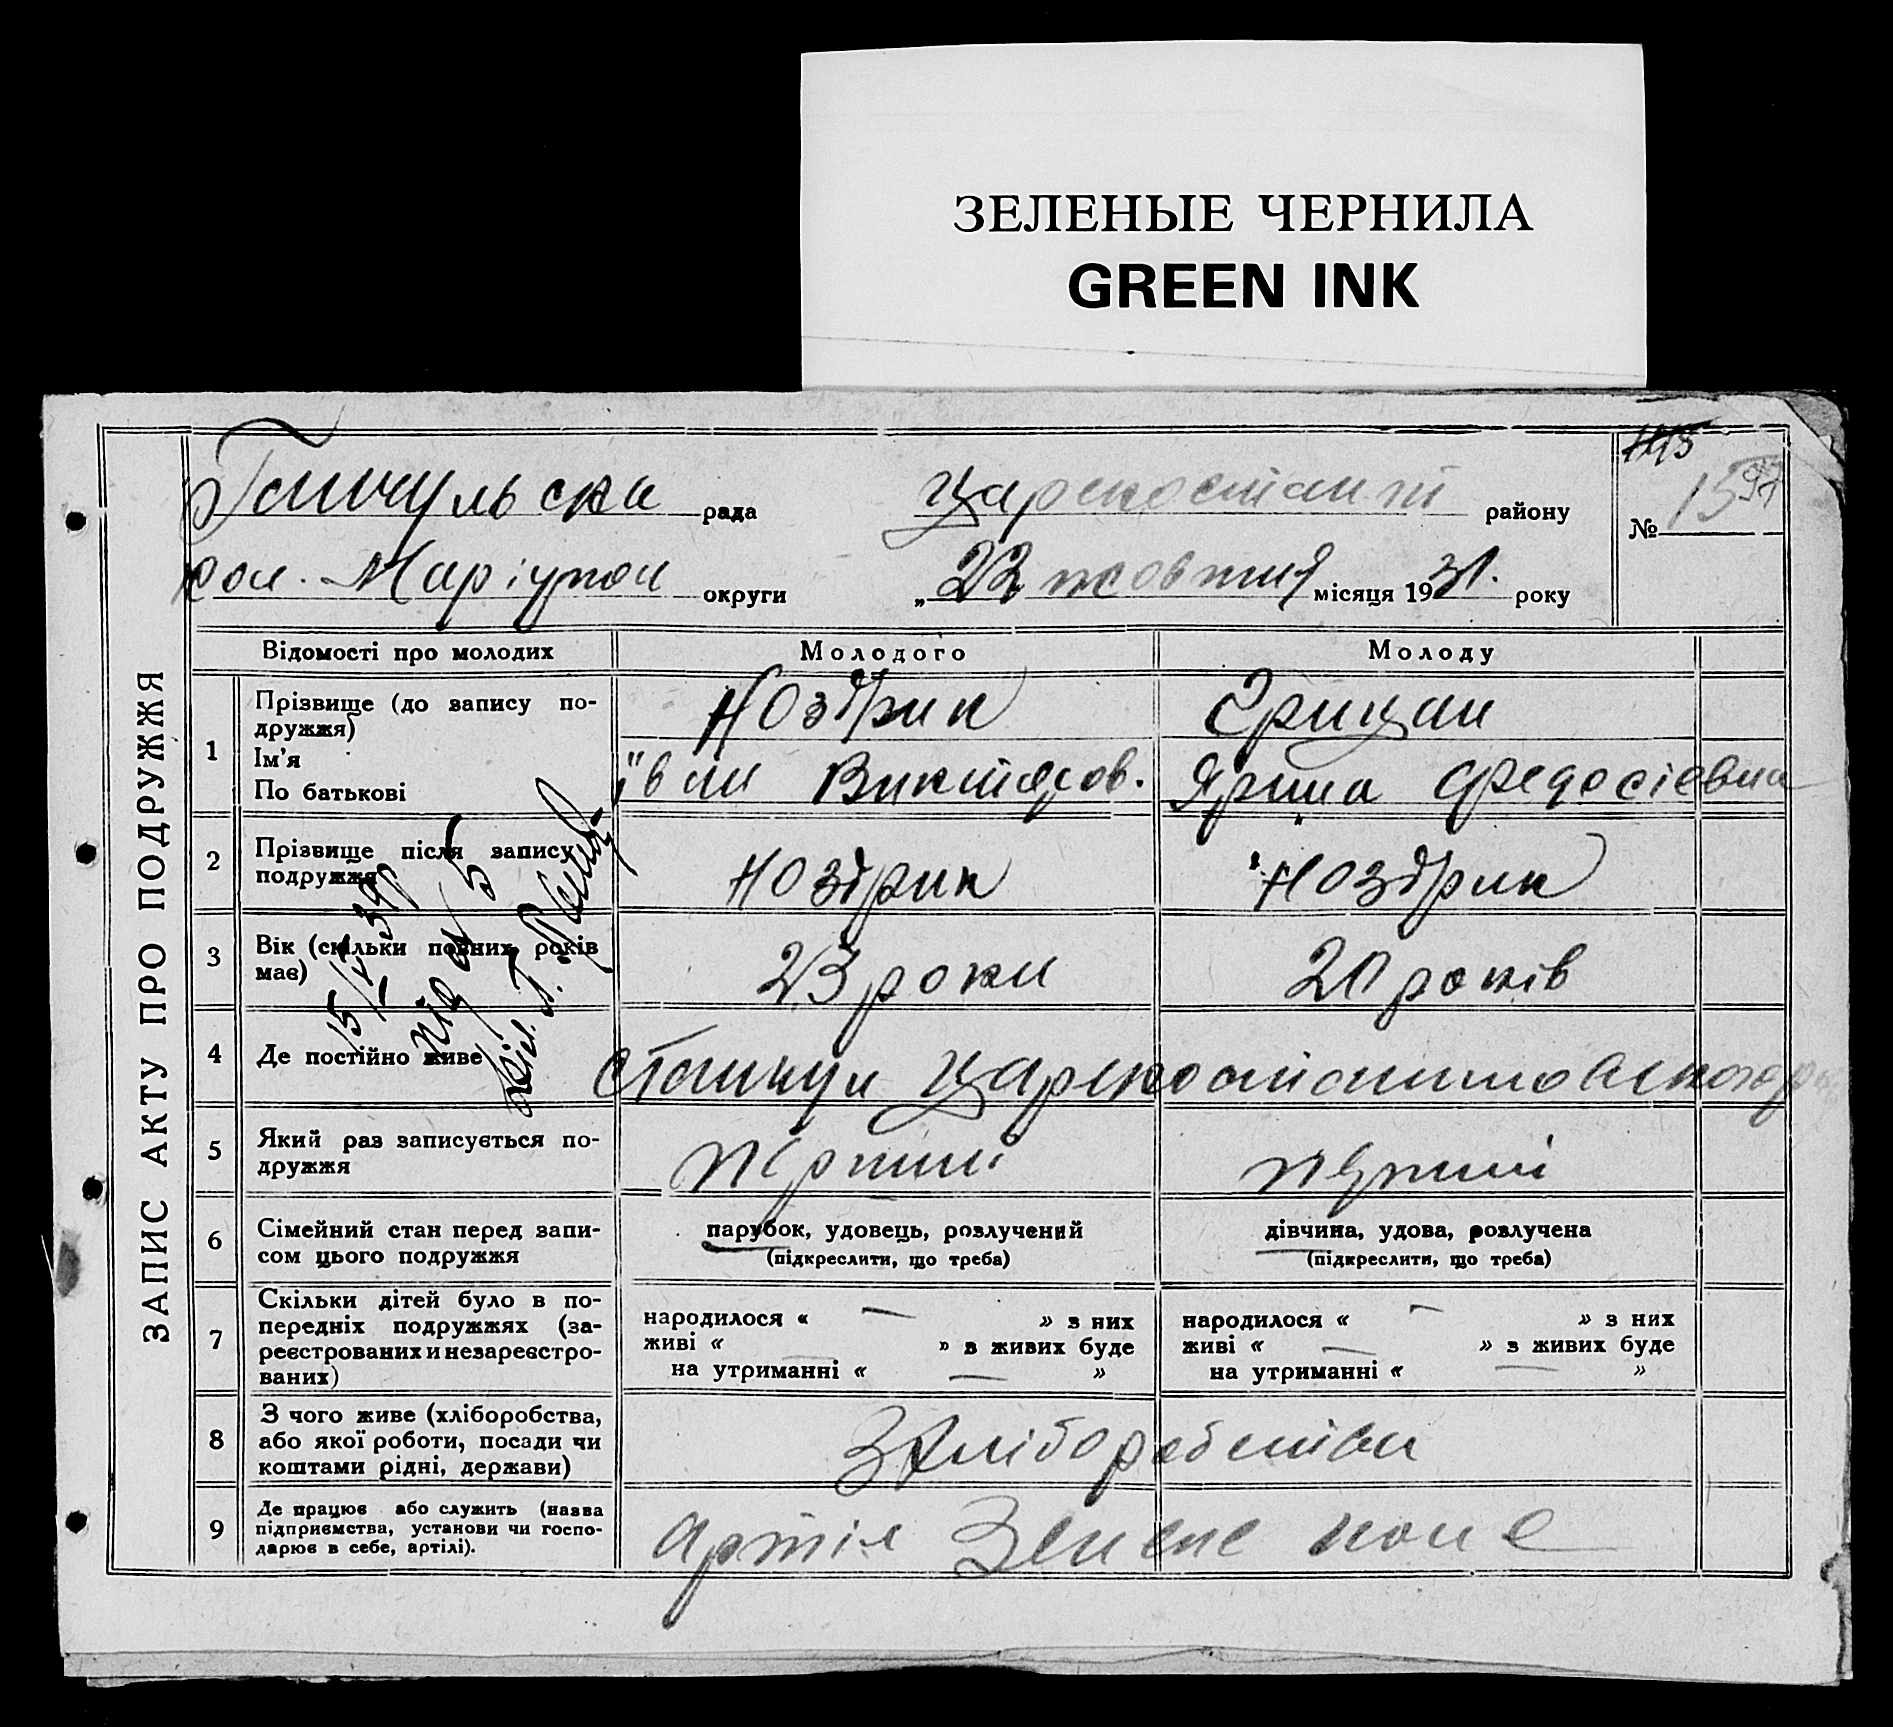 ЗЕЛЕНЫЕ ЧЕРНИЛА
GREEN INK
рада
района
районy
№ 15
кол. Маріупол округи
„22 жовтня місяця 1931. року
ЗАПИС АКТУ ПРО ПОДРУЖЖЯ
Відомості про молодих
Молодого
Молоду
1
Прізвище (до запису по-
дружжя)
Ім'я
По батькові
Ноздрин
Грицай
Викторов.
Ярина Федосіевна
2
Прізвище після запису
подружжя
Ноздрин
Ноздрин
3
Вік (скільки повних років
має)
23 роки
20 років
4
Де постійно живе
5
Який раз записується по-
дружжя
перший
перший
6
Сімейний стан перед запи-
сом цього подружжя
парубок, удовець, розлучений
(підкреслити, що треба)
дівчина, удова, розлучена
(підкреслити, що треба)
7
Скільки дітей було в по-
передніх подружжях (за-
реєстрованих и незареєстро-
ваних)
народилося « — » з них
живі « — » з живих буде
на утриманні « — »
народилося « — » з них
живі « — » з живих буде
на утриманні « — »
8
З чого живе (хліборобства,
або якої роботи, посади чи
коштами рідні, держави)
З хліборобства
9
Де працює або служить (назва
підприємства, установи чи госпо-
дарює в себе, артілі).
Артіл Зелене поле